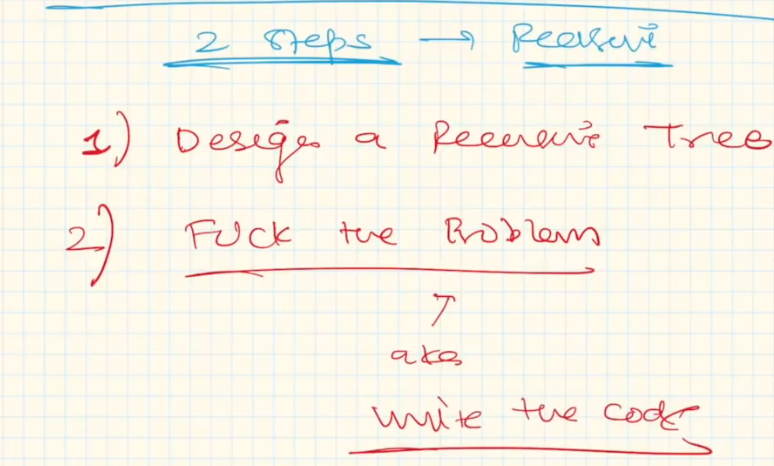 2 Steps → Recursive
1) Design a Recursive Tree
2) FUCK the Problem
↑
aka
write the code